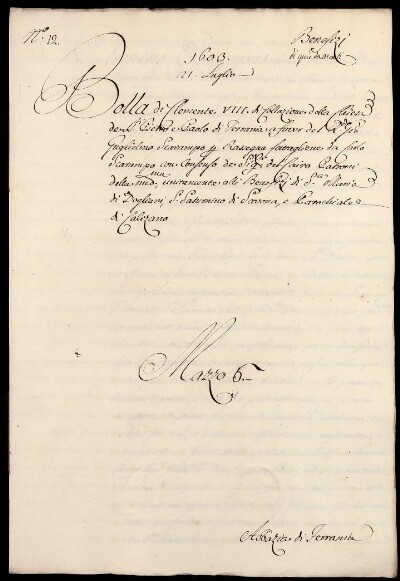 Nº. 12.
Benefizi
di quà da Monti
1603.
21. Luglio
Bolla di Clemente VIII. di collazione della Chiesa
de Sti Pietro e Paolo di Ferrania a favore del
Guglielmo Scarampo p Rassegna fattagliene da
Scarampo con Consenso de Sigri del fu
della mma, unitamente alli Benefizj di Sta Maria
di Dogliani, S. Saturnino di Savona, e Parochiale
di Calizano
Mazzo 6.
Abbazia di Ferrania